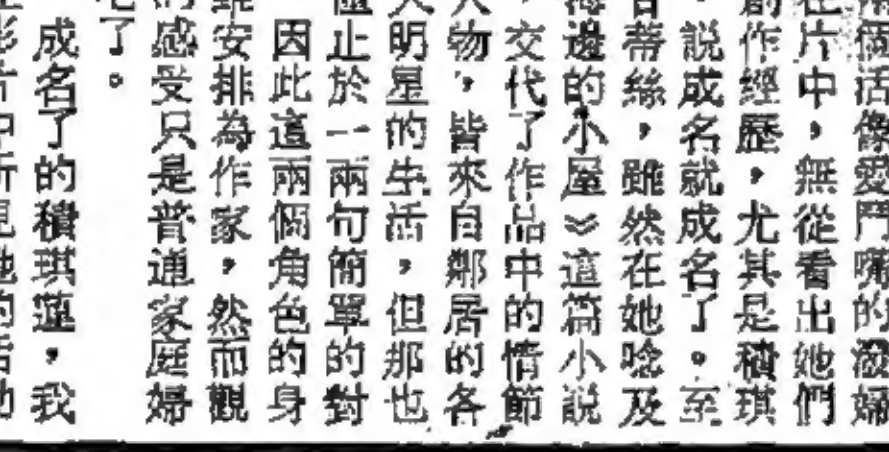 兩個活像愛鬥嘴的潑婦
在片中，無從看出她們
創作經歷，尤其是積琪
說成名就成名了。至
蒂絲，雖然在她唸及
海邊的小屋》這篇小說
，交代了作品中的情節
人物，皆來自鄰居的各
大明星的生活，但那也
僅止於一兩句簡單的對
因此這兩個角色的身
安排為作家，然而觀
的感受只是普通家庭婦
吧了。
成名了的積琪蓮，我
在影片中所見她的活動